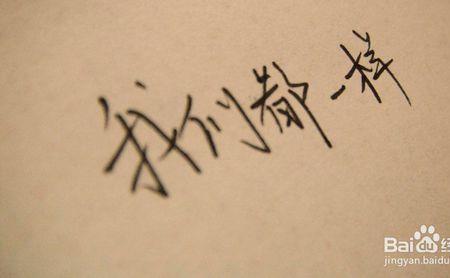 我们都一样
Bai du 经
jingyan.baidu